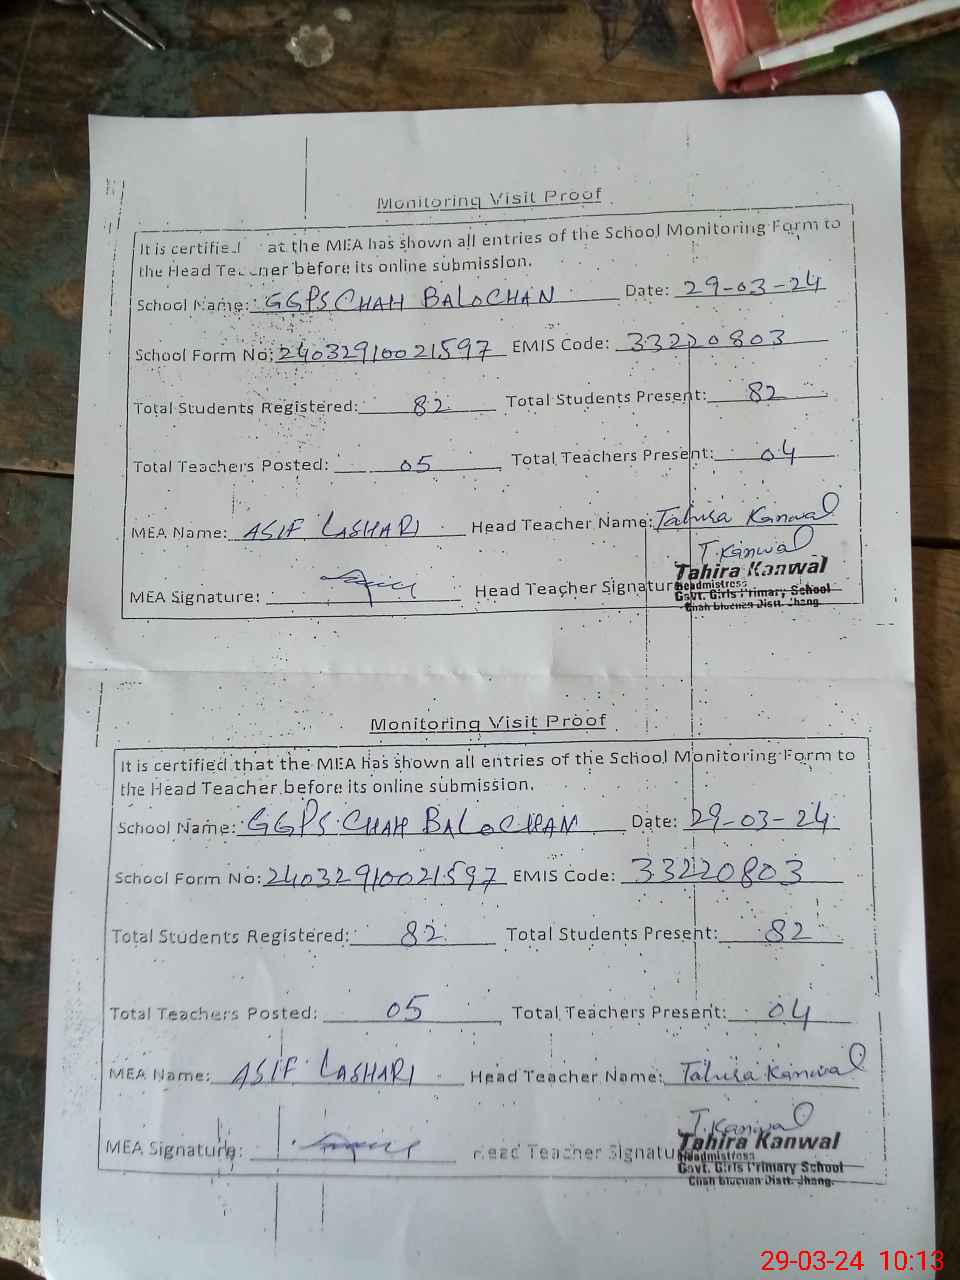 Monitoring Visit Proof
It is certified at the MEA has shown all entries of the School Monitoring Form to
the Head Teacher before its online submission.
School Name: GGPS CHAH BALOCHAN Date: 29-03-24
School Form No: 24032910021597 EMIS Code: 33220803
Total Students Registered: 82 Total Students Present: 82
Total Teachers Posted: 05 Total Teachers Present: 04
MEA Name: ASIF LASHARI Head Teacher Name: Tahira Kanwal
T. Kanwal
Tahira Kanwal
MEA Signature: Head Teacher Signature
Headmistress
Govt. Girls Primary School
Chah Distt. Jhang.
Monitoring Visit Proof
It is certified that the MEA has shown all entries of the School Monitoring Form to
the Head Teacher before its online submission.
School Name: GGPS CHAH BALOCHAN Date: 29-03-24
School Form No: 24032910021597 EMIS Code: 33220803
Total Students Registered: 82 Total Students Present: 82
Total Teachers Posted: 05 Total Teachers Present: 04
MEA Name: ASIF LASHARI Head Teacher Name: Tahira Kanwal
T. Kanwal
Tahira Kanwal
MEA Signature: Head Teacher Signatu
Headmistress
Govt. Girls Primary School
Chah Distt. Jhang.
29-03-24 10:13